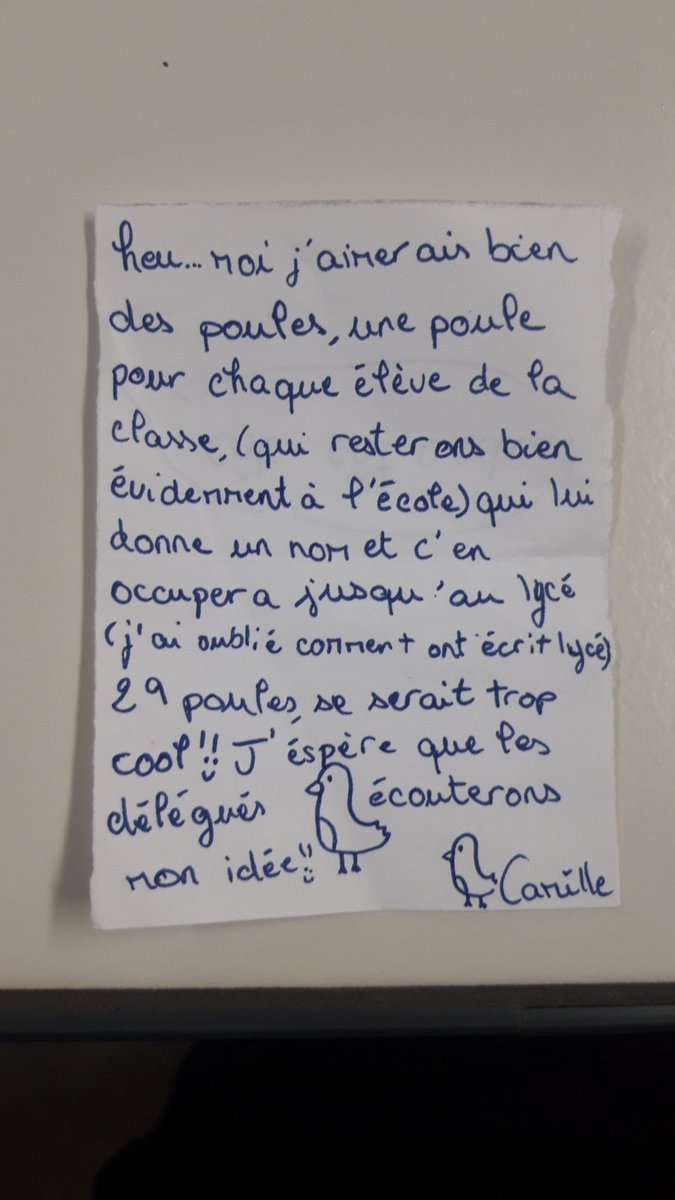 heu... moi j'aimerais bien
des poules, une poule
pour chaque élève de la
classe, (qui resterons bien
évidemment à l'école) qui lui
donne un nom et c'en
occupera jusqu'au lycé
(j'ai oublié comment ont écrit lycé)
29 poules, se serait trop
cool!! J'éspère que les
délégués écouterons
mon idée!!
Camille